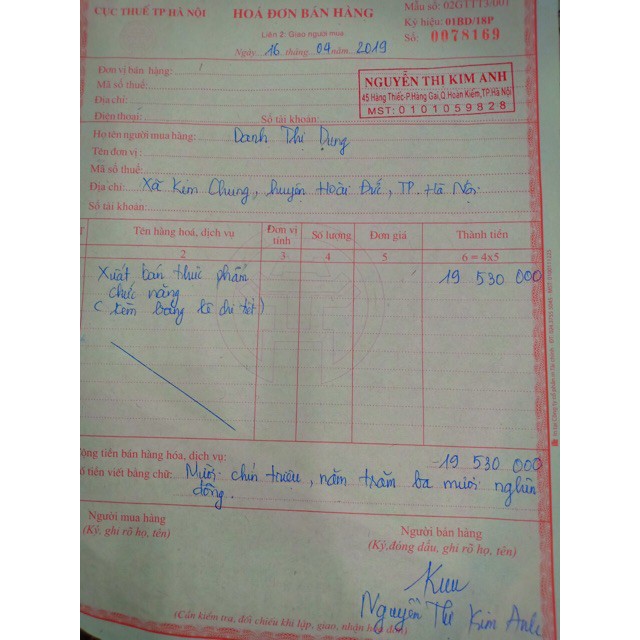 CỤC THUẾ TP HÀ NỘI
HOÁ ĐƠN BÁN HÀNG
Mẫu số: 02GTTT3/001
Liên 2: Giao người mua
Ký hiệu: 01BD/18P
Ngày 16 tháng 04 năm 2019
Số: 0078169
Đơn vị bán hàng:
Mã số thuế:
Địa chỉ:
Điện thoại: Số tài khoản:
NGUYỄN THỊ KIM ANH
45 Hàng Thiếc-P.Hàng Gai,Q.Hoàn Kiếm,TP.Hà Nội
MST: 0101059828
Họ tên người mua hàng: Danh Thị Dung
Tên đơn vị:
Mã số thuế:
Địa chỉ: Xã Kim Chung, huyện Hoài Đức, TP. Hà Nội
Số tài khoản:
Tên hàng hoá, dịch vụ Đơn vị tính Số lượng Đơn giá Thành tiền
2 3 4 5 6 = 4x5
Xuất bán thực phẩm 19 530 000
chức năng
( kèm bảng kê chi tiết )
Cộng tiền bán hàng hóa, dịch vụ: 19 530 000
Số tiền viết bằng chữ: Mười chín triệu, năm trăm ba mươi nghìn
đồng.
Người mua hàng Người bán hàng
(Ký, ghi rõ họ, tên) (Ký,đóng dấu, ghi rõ họ, tên)
Nguyễn Thị Kim Anh
(Cần kiểm tra, đối chiếu khi lập, giao, nhận hóa đơn)